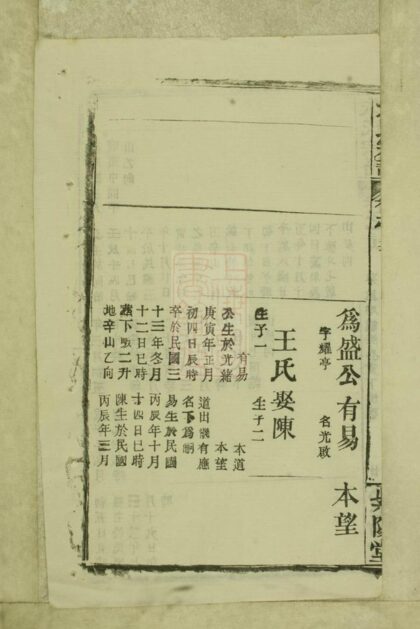 為盛公 有易 本望
字耀亭 名光啟
王氏 娶陳
生子一 生子二
有易 本道
公生於光緒 本望
庚寅年正月 道出嗣有應
初四日辰時 名下為嗣
卒於民國三 易生於民國
十三年冬月 丙辰年十月
十二日巳時 十四日巳時
葬下墩二升 陳生於民國
地辛山乙向 丙辰年三月